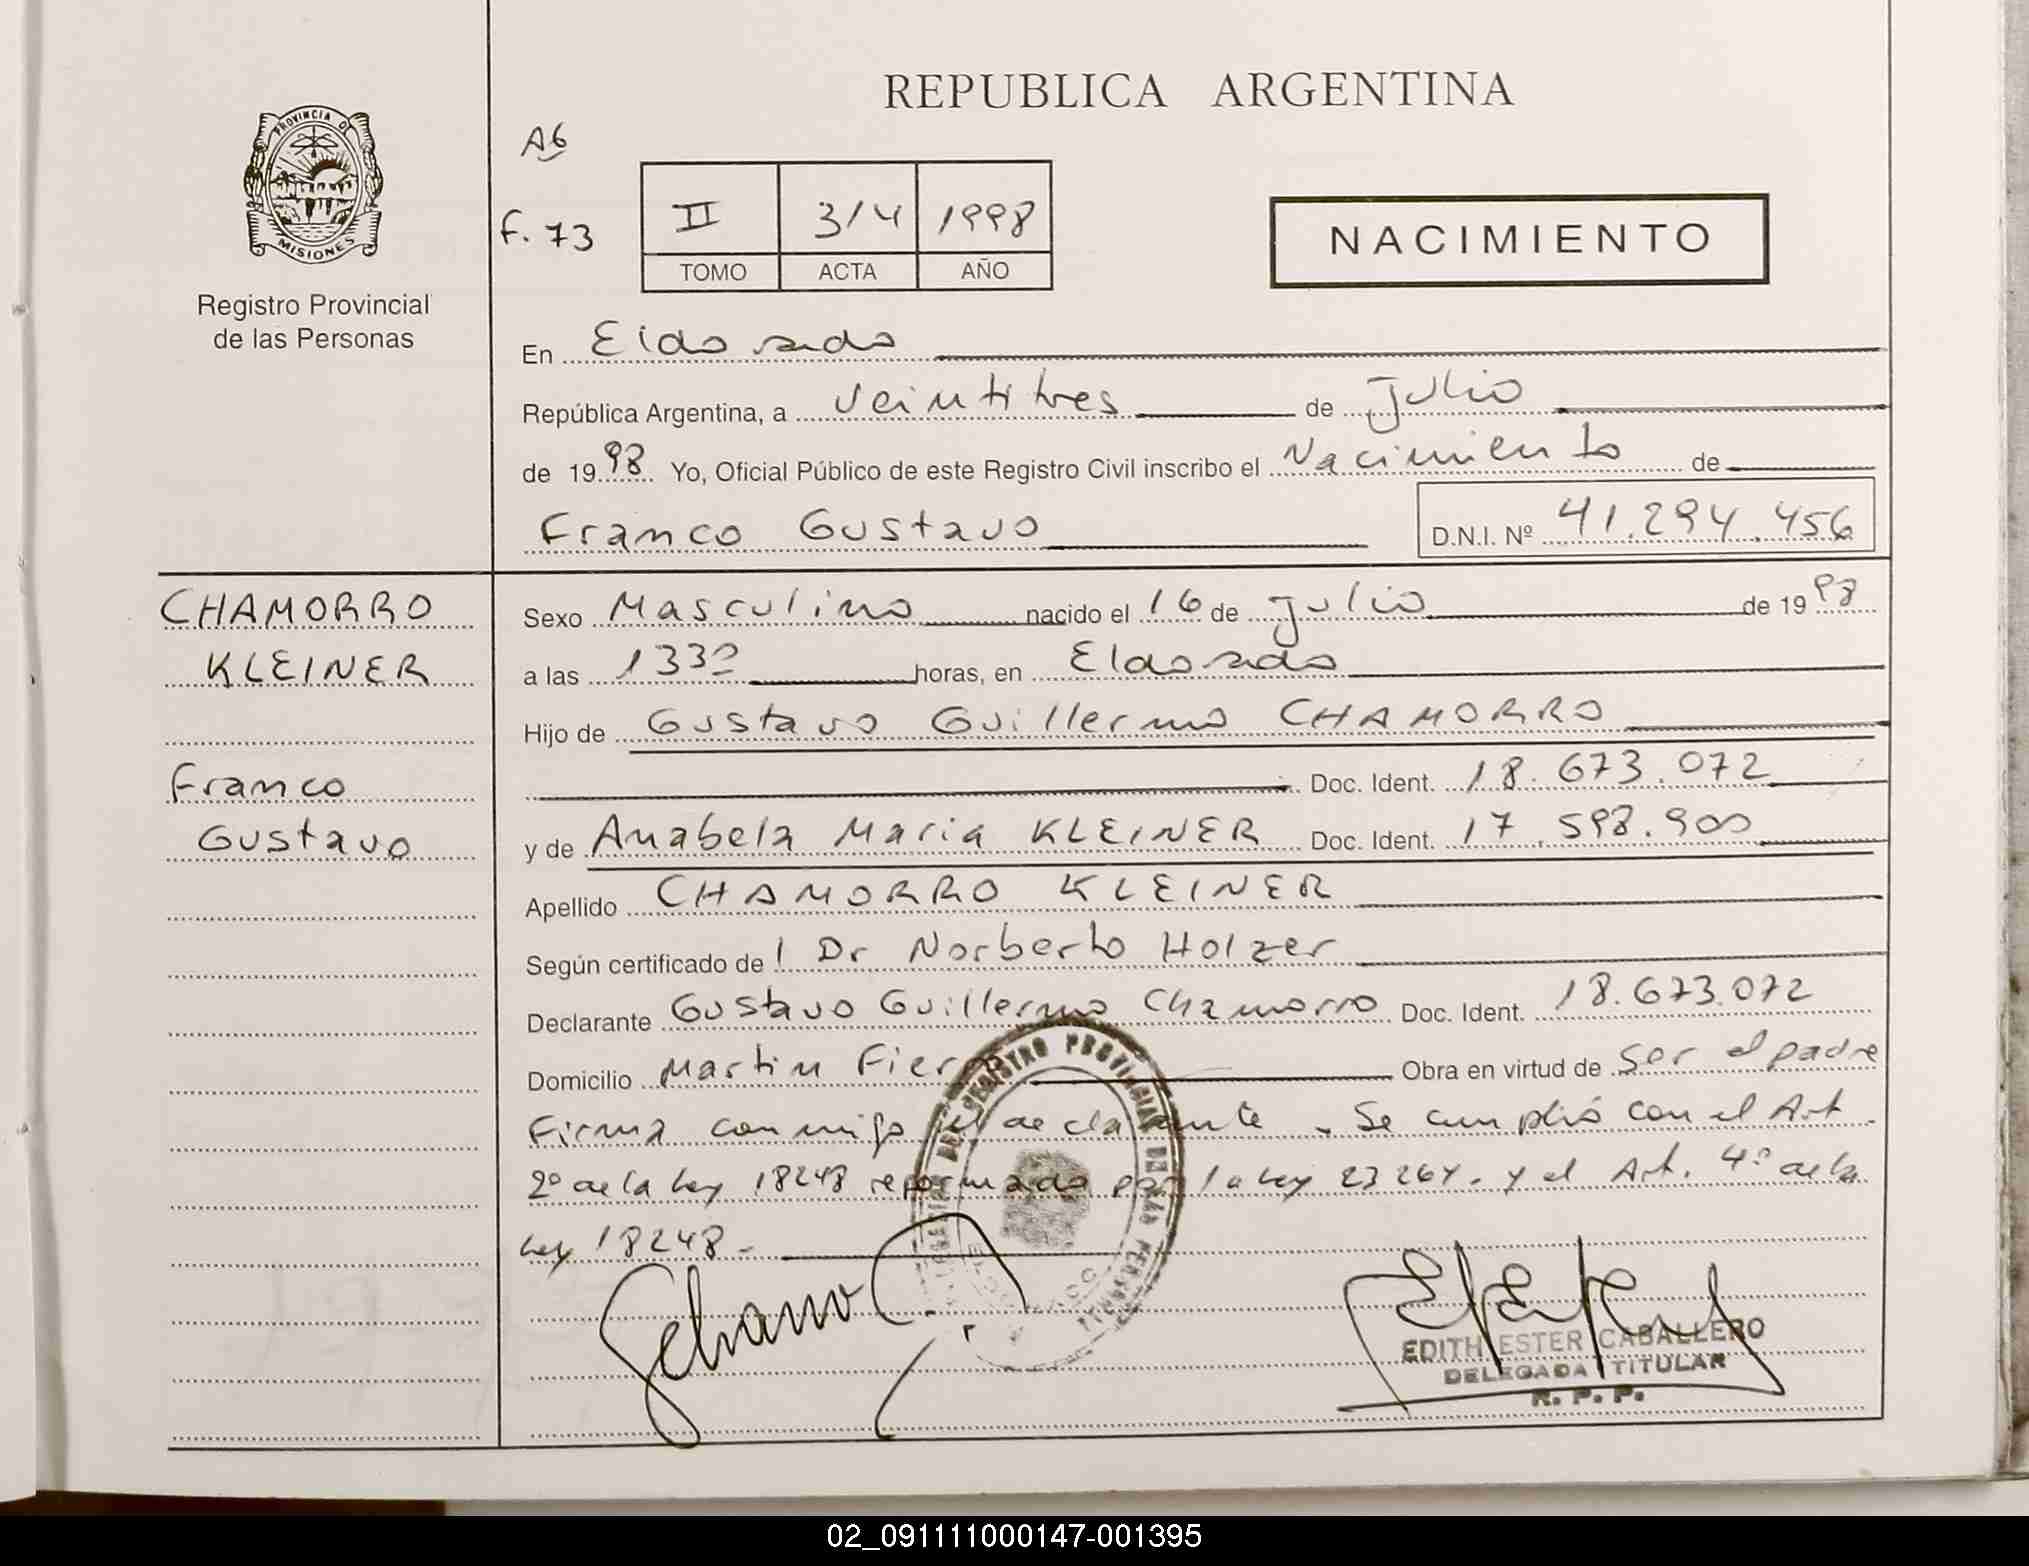 REPUBLICA ARGENTINA
PROVINCIA DE
MISIONES
Registro Provincial
de las Personas
A6
F. 73
II 314 1998
TOMO ACTA AÑO
NACIMIENTO
En Eldorado
República Argentina, a veintitres de Julio
de 1998 Yo, Oficial Público de este Registro Civil inscribo el Nacimiento de
Franco Gustavo D.N.I. Nº 41.294.456
CHAMORRO
KLEINER
Franco
Gustavo
Sexo Masculino nacido el 16 de julio de 1998
a las 1330 horas, en Eldorado
Hijo de Gustavo Guillermo CHAMORRO
Doc. Ident. 18.673.072
y de Anabela Maria KLEINER Doc. Ident. 17.598.900
Apellido CHAMORRO KLEINER
Según certificado de l Dr Norberto Holzer
Declarante Gustavo Guillermo Chamorro Doc. Ident. 18.673.072
Domicilio Martin Fierro Obra en virtud de ser el padre
Firma conmigo el declarante. Se cumplió con el Art
2º de la Ley 18248 reformado por la Ley 23264. y el Art. 4º de la
Ley 18248.-
DEL REGISTRO PROVINCIAL DE LAS PERSONAS
EDITH ESTER CABALLERO
DELEGADA TITULAR
R. P. P.
02_091111000147-001395